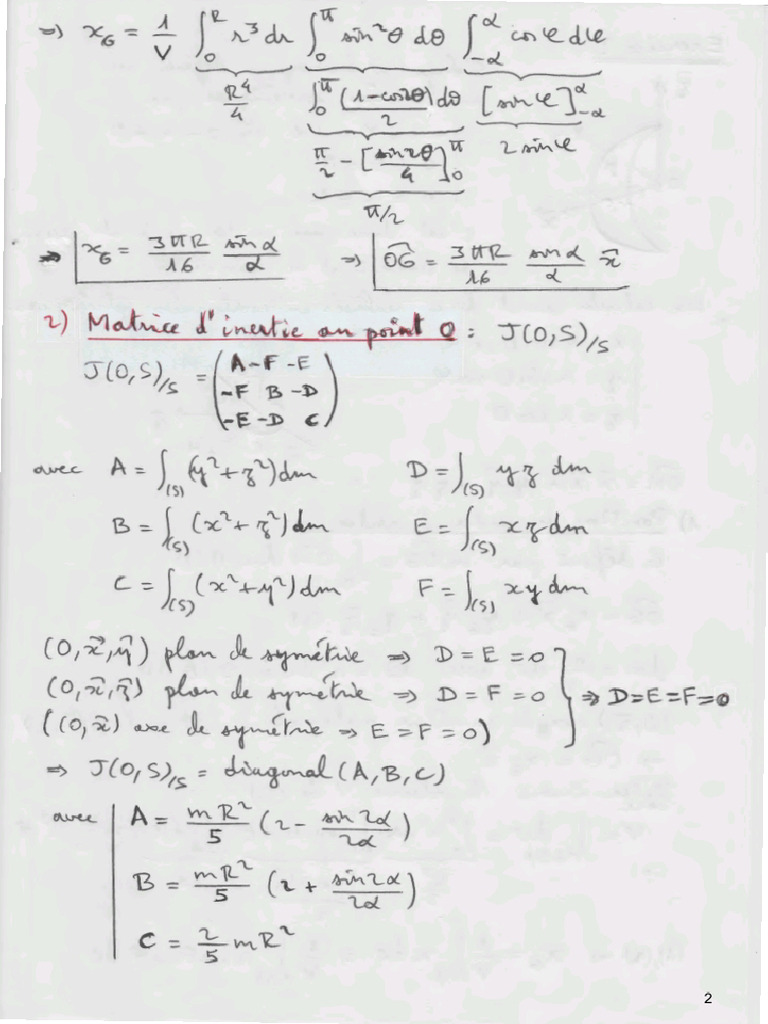 ⇒ x_G = 1/V ∫_0^R r³dr ∫_0^π sin²θ dθ ∫_{-α}^{α} cosφ dφ
R⁴/4   ∫_0^π (1-cos2θ)/2 dθ   [sinφ]_{-α}^{α}
π/2 - [sin2θ/4]_0^π   2 sinφ
π/2
⇒ x_G = 3πR/16 sinα/α ⇒ OG⃗ = 3πR/16 sinα/α x⃗
2) Matrice d'inertie au point O : J(O,S)/S
J(O,S)/S = ( A -F -E
-F B -D
-E -D C )
avec A = ∫_(S) (y²+z²)dm D = ∫_(S) yz dm
B = ∫_(S) (x²+z²)dm E = ∫_(S) xz dm
C = ∫_(S) (x²+y²)dm F = ∫_(S) xy dm
(O,x⃗,y⃗) plan de symétrie ⇒ D = E = 0
(O,x⃗,z⃗) plan de symétrie ⇒ D = F = 0 } ⇒ D=E=F=0
((O,x⃗) axe de symétrie ⇒ E = F = 0)
⇒ J(O,S)/S = diagonal (A,B,C)
avec A = mR²/5 (2 - sin2α/2α)
B = mR²/5 (2 + sin2α/2α)
C = 2/5 mR²
2